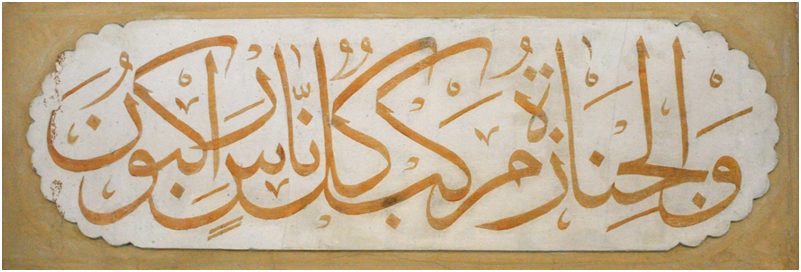 والجنازة مركب كل ناس راكبون